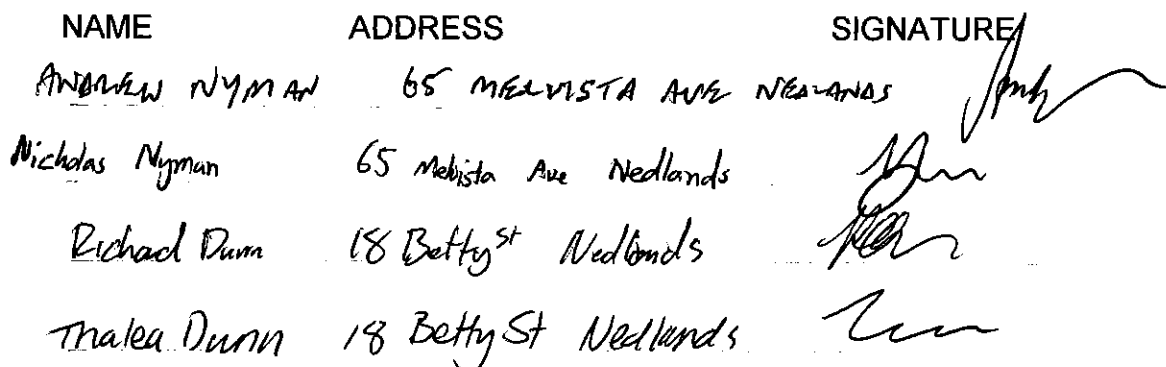 NAME ADDRESS SIGNATURE
ANDREW NYMAN 65 MELVISTA AVE NEDLANDS
Nicholas Nyman 65 Melvista Ave Nedlands
Richard Dunn 18 Betty St Nedlands
Thalea Dunn 18 Betty St Nedlands